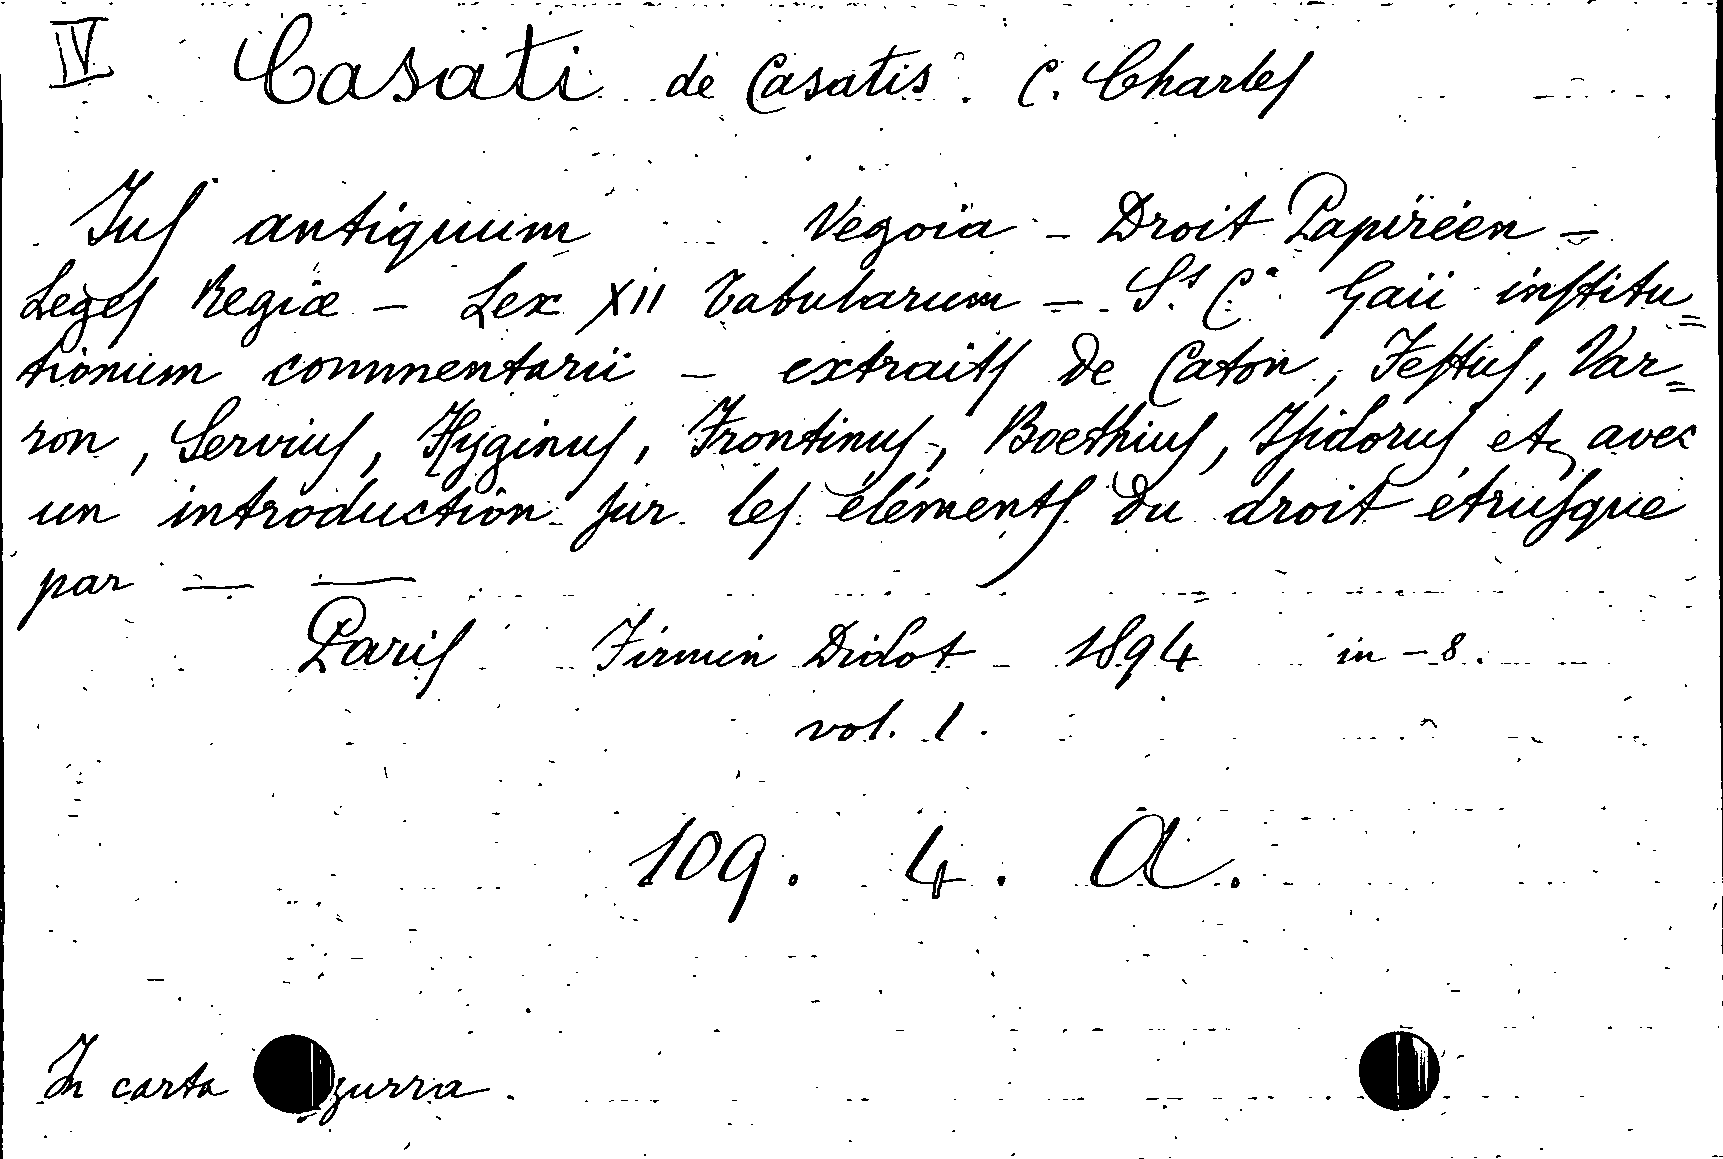 IV Casati de Casatis. C. Charles
Jus antiquum Vegoia - Droit Papiréen -
Leges Regiæ - Lex XII Tabularum - S.s C.° Gaii institu=
tionum commentarii - extraits de Caton, Festus, Var=
ron, Servius, Hyginus, Frontinus, Boethius, Isidorus etc avec
un introduction sur les éléments du droit étrusque
par — —
Paris Firmin Didot - 1894 in-8.
vol. 1.
109. 4. A.
In carta zurra.